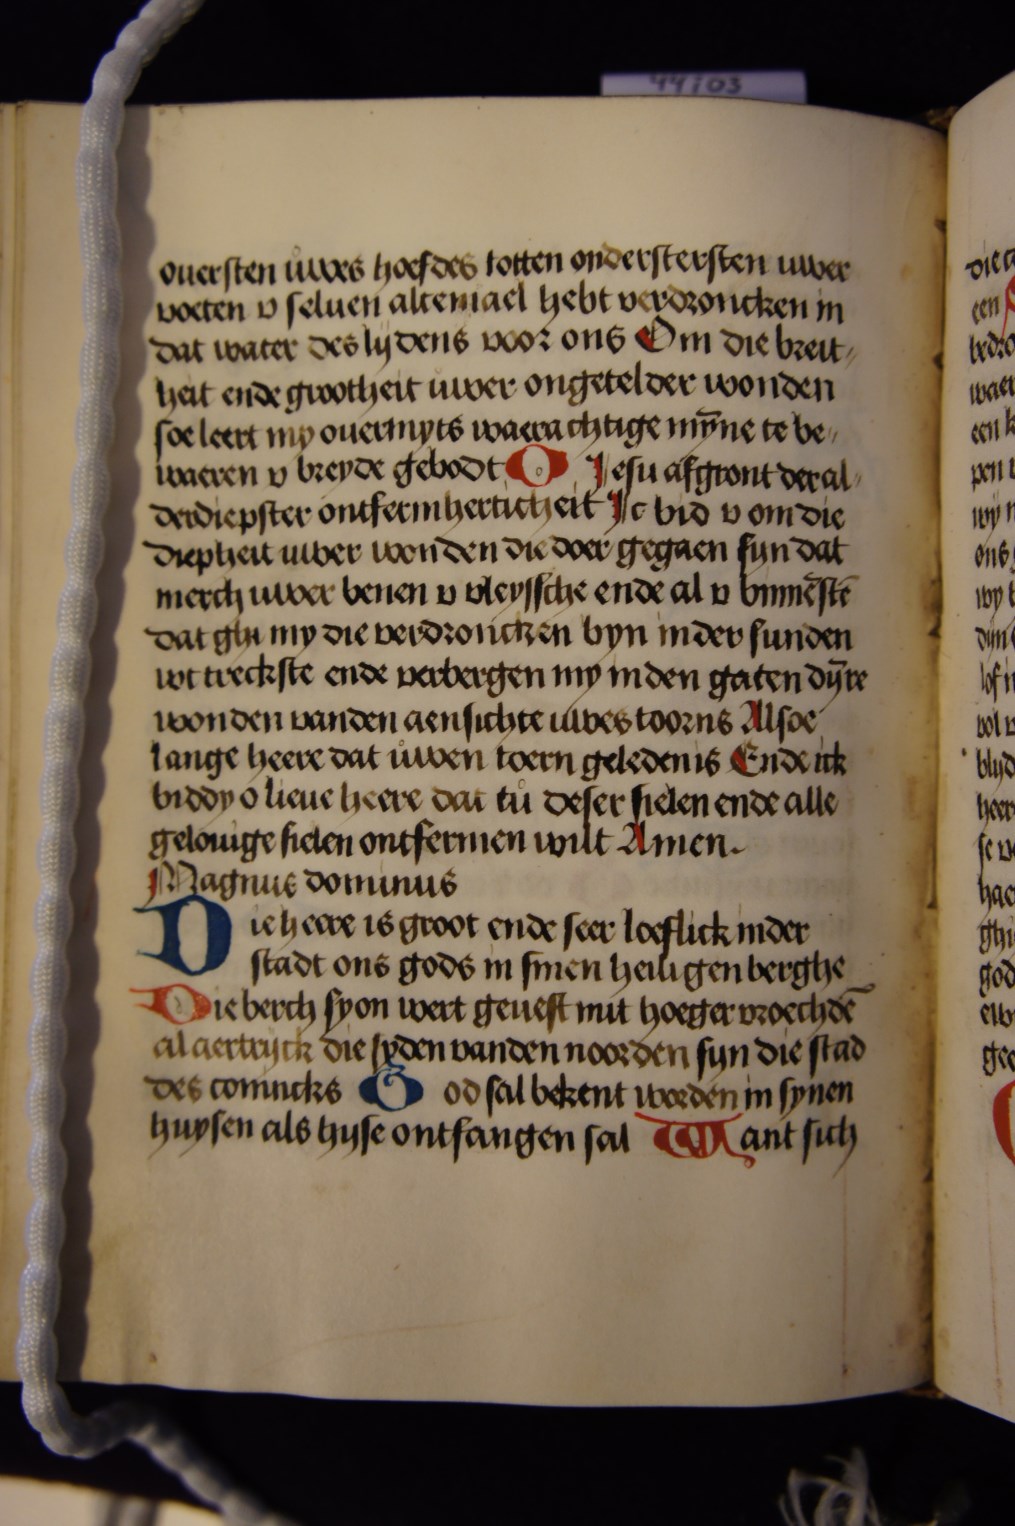 44 i 03
ouersten uwes hoefdes totten onderstersten uwer
voeten v seluen altemael hebt verdroncken in
dat water des lijdens voor ons Om die breit⸗
heit ende grootheit uwer ongetelder wonden
soe leert my ouermyts waerachtige mȳne te be⸗
waeren v breyde gebodt O Jesu afgront der al⸗
derdiepster ontfermherticheit Jc bid v om die
diepheit uwer wonden die doer gegaen syn dat
merch uwer benen v vleyssche ende al v binnēstē
dat ghi my die verdroncken byn in der sunden
wt treckste ende verbergen my in den gaten dȳre
wonden vanden aensichte uwes toorns Alsoe
lange heere dat uwen toern geleden is Ende ick
biddy o lieue heere dat tu deser sielen ende alle
gelouige sielen ontfermen wilt Amen.
Magnus dominus
Die heere is groot ende seer loeflick inder
stadt ons gods in sinen heiligen berghe
Die berch syon wert geuest mit hoeger vroechdē
al aertrijck die syden vanden noorden syn die stad
des conincks God sal bekent worden in synen
huysen als hyse ontfangen sal Want sich